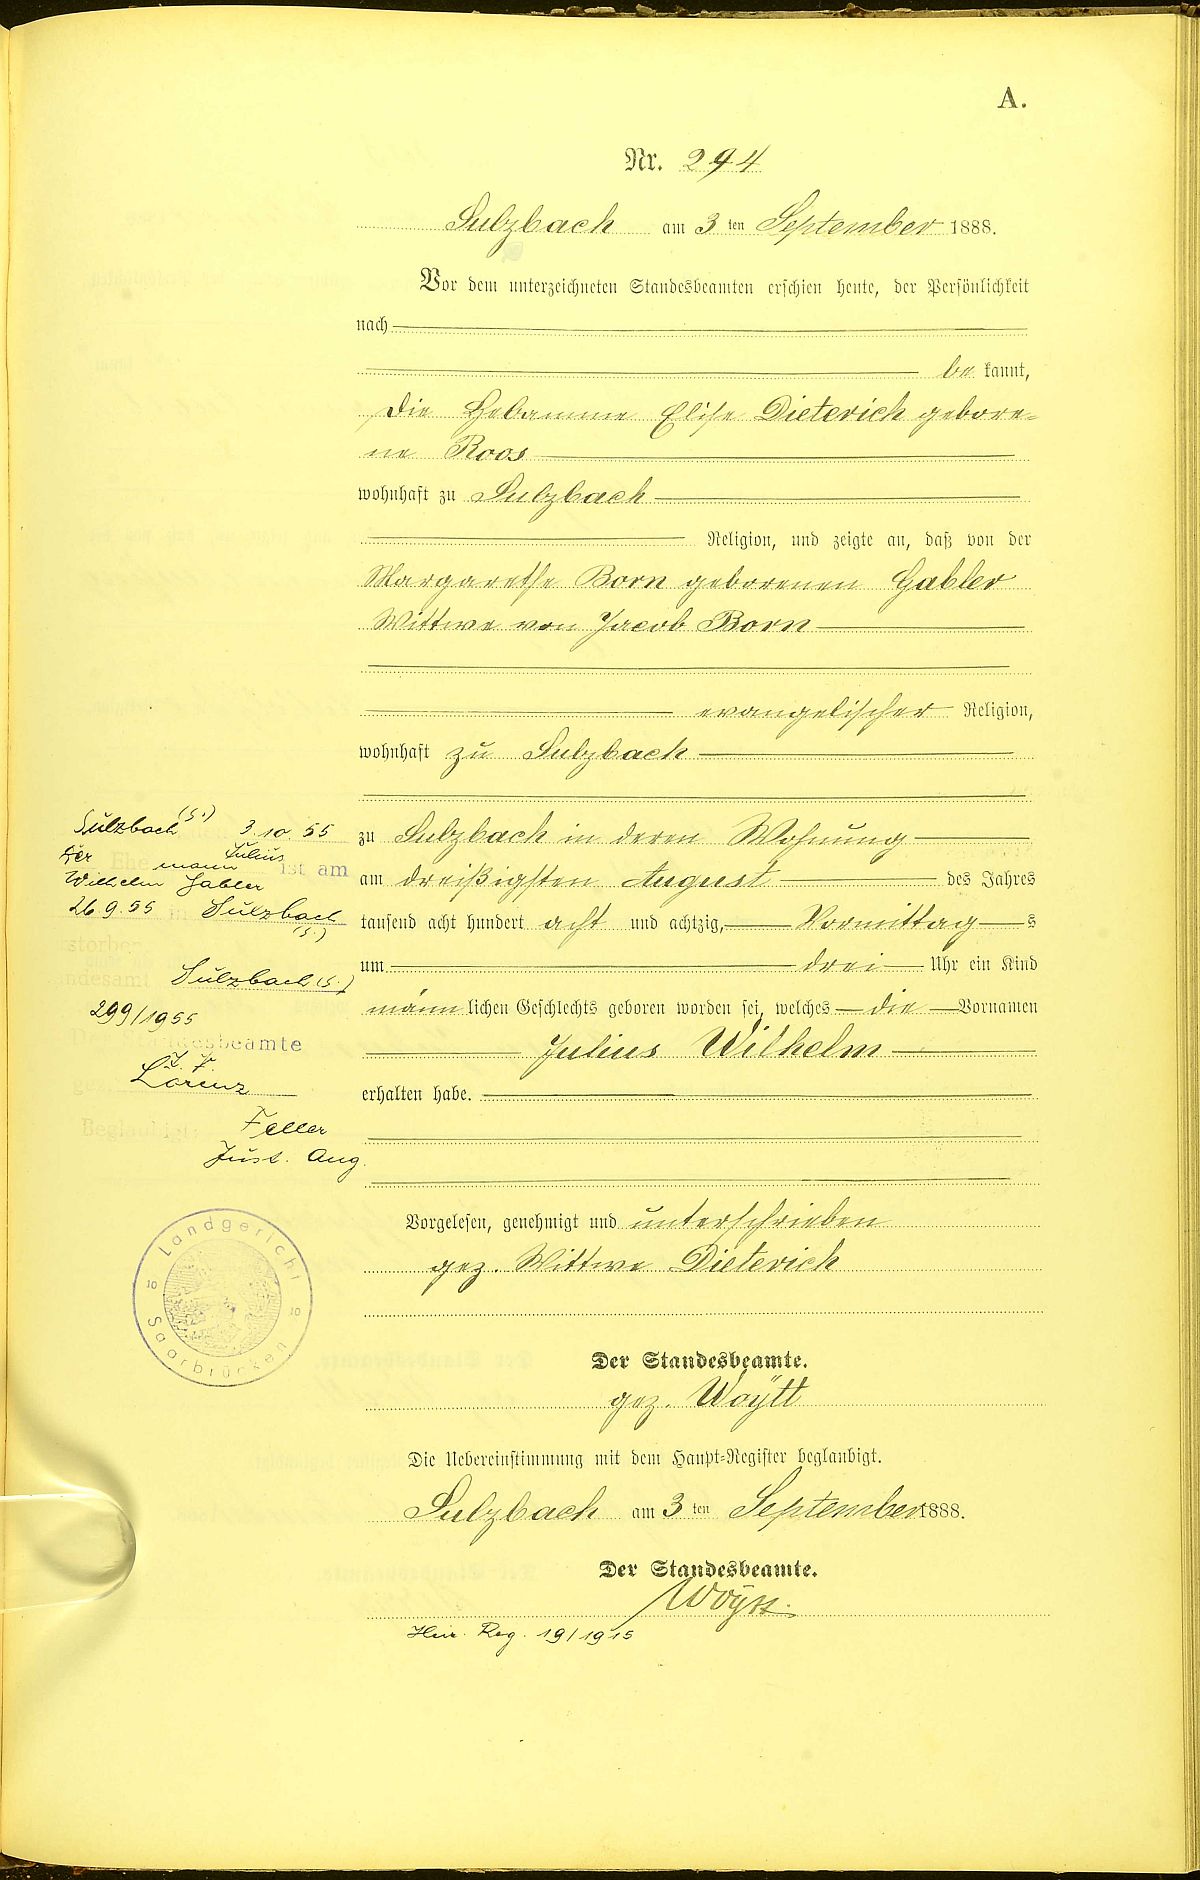 A.
Nr. 294
Sulzbach am 3 ten September 1888.
Vor dem unterzeichneten Standesbeamten erschien heute, der Persönlichkeit
nach
be kannt,
die Hebamme Elise Dieterich gebore-
ne Roos
wohnhaft zu Sulzbach
Religion, und zeigte an, daß von der
Margarethe Born geborenen Gabler
Wittwe von Jacob Born
evangelischer Religion,
wohnhaft zu Sulzbach
zu Sulzbach in deren Wohnung
am dreißigsten August des Jahres
tausend acht hundert acht und achtzig, Vormittag s
um drei Uhr ein Kind
männ lichen Geschlechts geboren worden sei, welches die Vornamen
Julius Wilhelm
erhalten habe.
Vorgelesen, genehmigt und unterschrieben
gez. Wittwe Dieterich
Der Standesbeamte.
gez. Woÿtt
Die Uebereinstimmung mit dem Haupt-Register beglaubigt.
Sulzbach am 3 ten September 1888.
Der Standesbeamte.
Woÿtt.
Heir. Reg. 19/1915
Sulzbach (S.) 3.10.55
Der Ehe mann Julius
Wilhelm Gabler ist am
26.9.55 in Sulzbach
(S.)
verstorben
Standesamt Sulzbach (S.)
299/1955
Der Standesbeamte
I. V.
gez. Lorenz
Beglaubigt: Feller
Just. Ang.
Landgericht
10 10
Saarbrücken